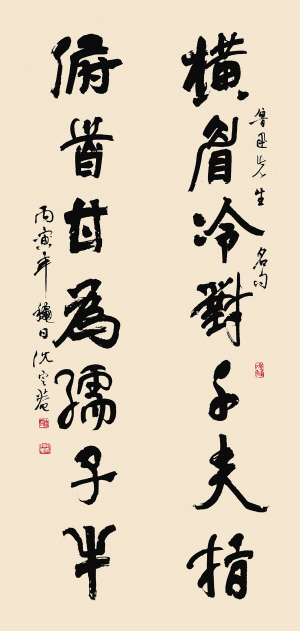 橫眉冷對千夫指
魯迅先生名句
俯首甘為孺子牛
丙寅年穐日沈定庵